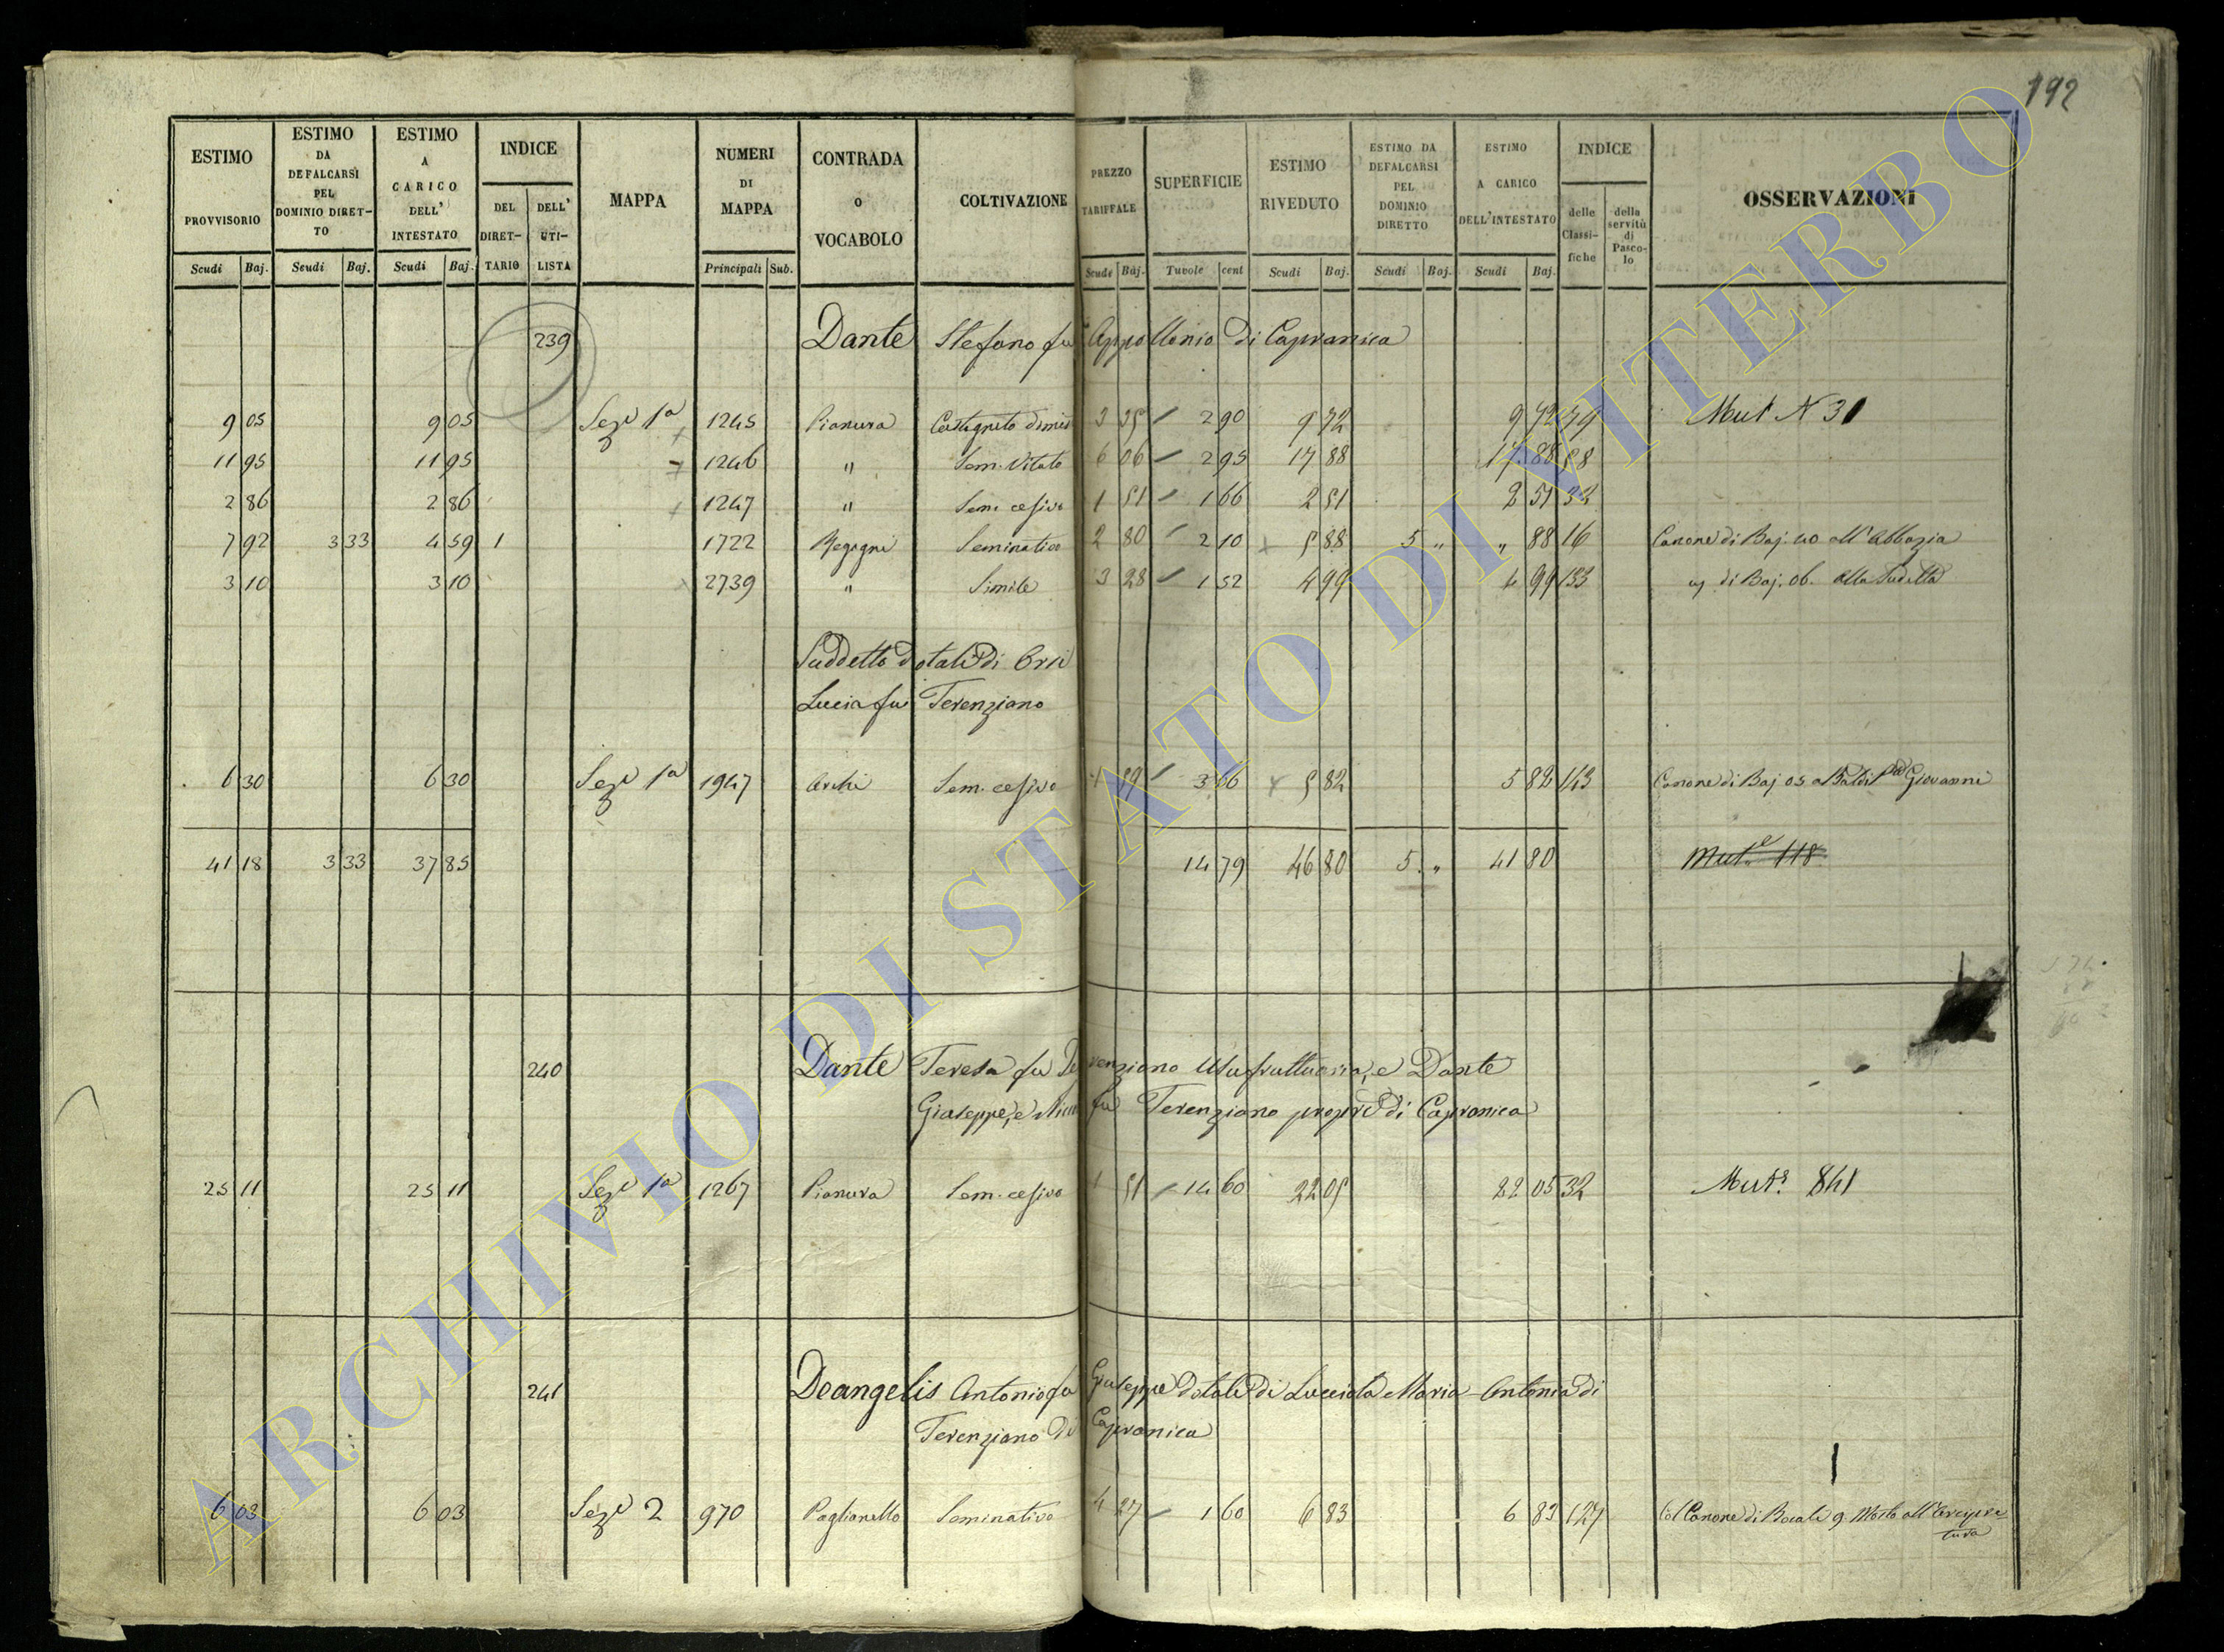 192
ESTIMO PROVVISORIO Scudi Baj.
ESTIMO DA DEFALCARSI PEL DOMINIO DIRETTO Scudi Baj.
ESTIMO A CARICO DELL' INTESTATO Scudi Baj.
INDICE DEL DIRETTARIO DELL' UTILISTA
MAPPA
NUMERI DI MAPPA Principali Sub.
CONTRADA o VOCABOLO
COLTIVAZIONE
PREZZO TARIFFALE Scudi Baj.
SUPERFICIE Tavole cent
ESTIMO RIVEDUTO Scudi Baj.
ESTIMO DA DEFALCARSI PEL DOMINIO DIRETTO Scudi Baj.
ESTIMO A CARICO DELL'INTESTATO Scudi Baj.
INDICE delle Classifiche della servitù di Pascolo
OSSERVAZIONI
239 Dante Stefano fu Appollonio di Capranica
9 05 9 05 Sez.e 1a 1245 Pianura 3 35 2 90 9 72 9 72 79 Mut N 31
11 95 11 95 1246 " Sem. Vitato 6 06 2 95 17 88 17 88 58
2 86 2 86 1247 " Sem. cesivo 1 51 1 66 2 51 2 51 32
7 92 3 33 4 59 1 1722 Seminativo 2 80 2 10 5 88 5 " " 88 16 Canone di Baj. 40 all'Abbazia
3 10 3 10 2739 " Simile 3 28 1 52 4 99 4 99 133 di Baj. 06. alla Sudetta
Suddetto dotali di Orsi
Lucia fu Terenziano
6 30 6 30 Sez.e 1a 1947 Archi Sem. cesivo 1 59 3 66 5 82 5 82 143 Canone di Baj 05 a Baldi Giovanni
41 18 3 33 37 85 14 79 46 80 5 " 41 80 Mut.e 118
240 Dante Teresa fu Terenziano Usufruttuaria, e Dante
Giuseppe, e fu Terenziano propri di Capranica
25 11 25 11 Sez.e 1a 1267 Pianura Sem. cesivo 1 51 14 60 22 05 22 05 32 Mut.e 841
241 Deangelis Antonio fu Giuseppe dotali di Lucciola Maria Antonia di
Terenziano di Capranica
6 03 6 03 Sez.e 2 970 Paglianello Seminativo 4 27 1 60 6 83 6 83 127 Col Canone di Bocali 9 Mosto all'Arcipre
tura
ARCHIVIO DI STATO DI VITERBO